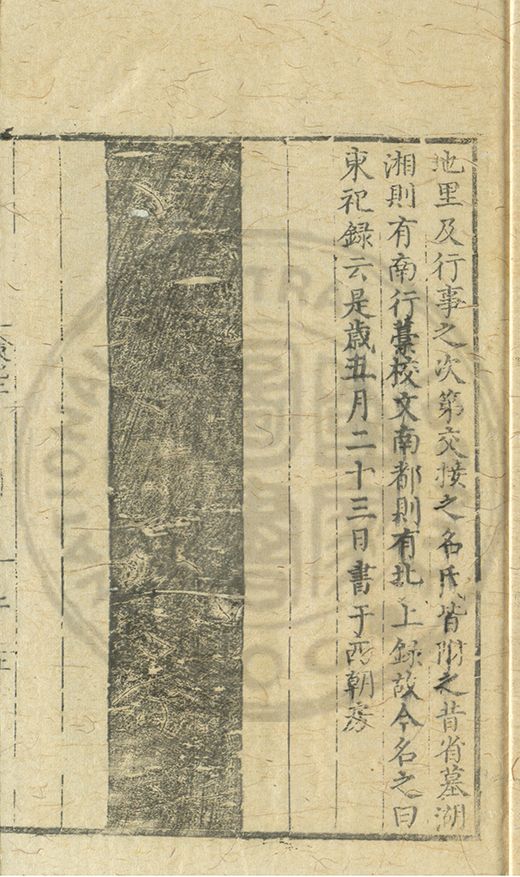 地里及行事之次第交接之名氏皆附之昔省墓湖
湘則有南行藁校文南都則有北上録故今名之曰
東祀録云是歳五月二十三日書于西朝房